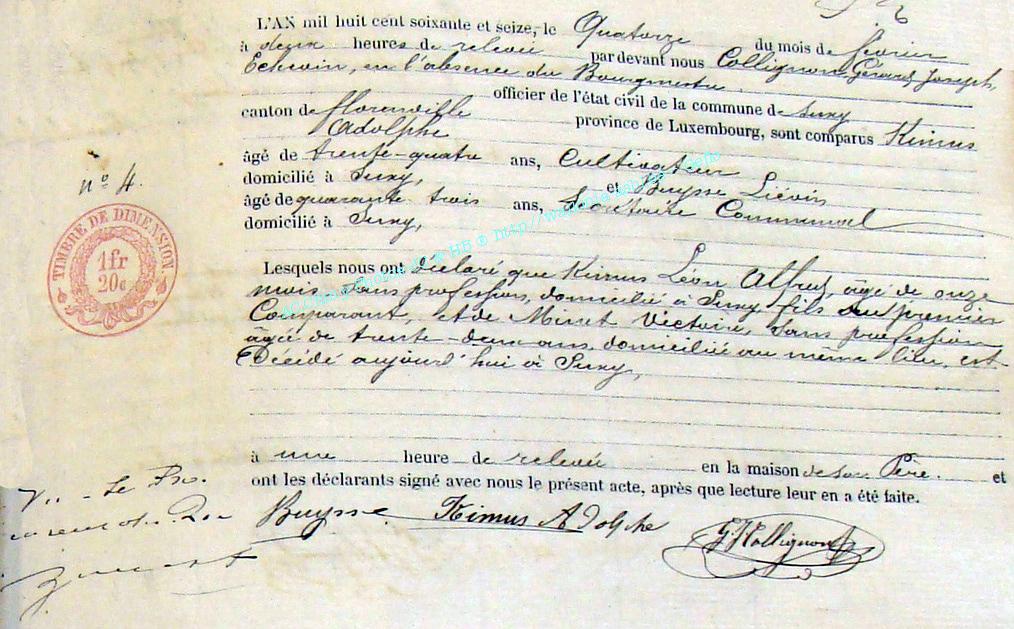 L'AN mil huit cent soixante et seize, le Quatorze du mois de février
à deux heures de relevée par devant nous Collignon Gérard Joseph,
Echevin, en l'absence du Bourgmestre
officier de l'état civil de la commune de Suxy
canton de florenville province de Luxembourg, sont comparus Kimus
Adolphe
âgé de trente-quatre ans, Cultivateur
domicilié à Suxy, et Buysse Liévin
âgé de quarante trois ans, Communal
domicilié à Suxy,
n° 4.
TIMBRE DE DIMENSION.
1fr
20c
Lesquels nous ont déclaré que Kimus Léon Alfred, âgé de onze
mois, sans profession, domicilié à Suxy, fils du premier
Comparant, et de Minet Victoire, sans profession
âgée de trente-deux ans, domiciliée au même lieu, est
Décédé aujourd'hui à Suxy,
à une heure de relevée en la maison de son Père. et
ont les déclarants signé avec nous le présent acte, après que lecture leur en a été faite.
Vu - Le Pro.
Buysse. Kimus Adolphe
G J Collignon